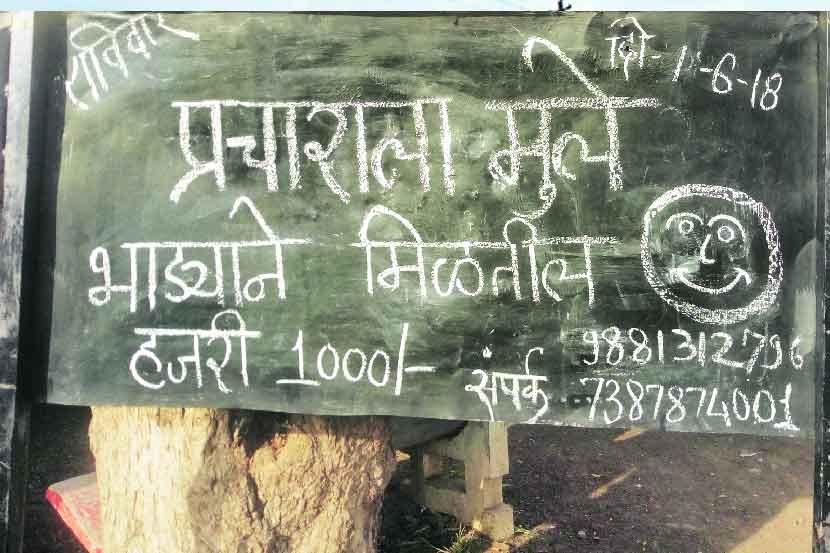 रविवार
दि- 11-6-18
प्रचाराला मुले
भाड्याने मिळतील
हजरी 1000/- संपर्क 9881312796
7387874001